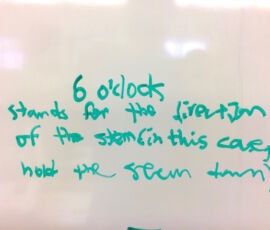 6 o'clock
stands for the direction
of the stem (in this case,
hold the stem down)